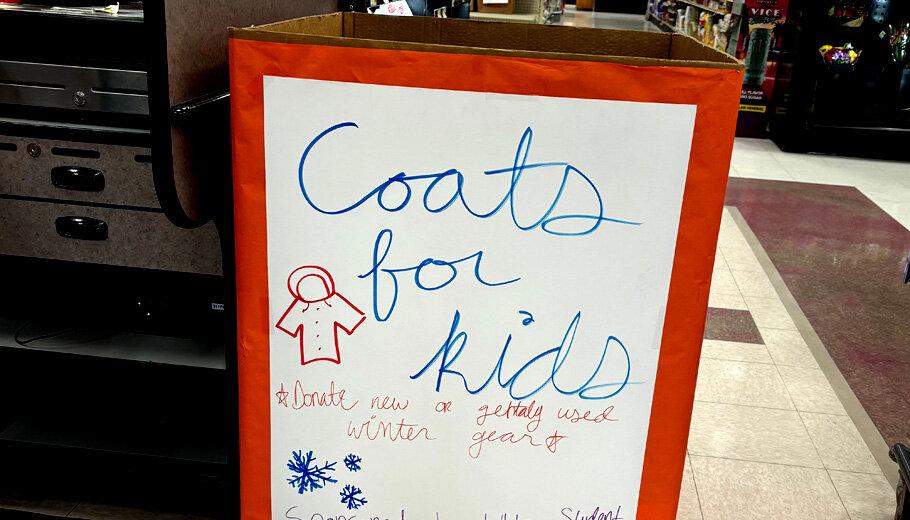 Coats
for
kids
☆Donate new or gently used
winter gear☆
Student
VICE